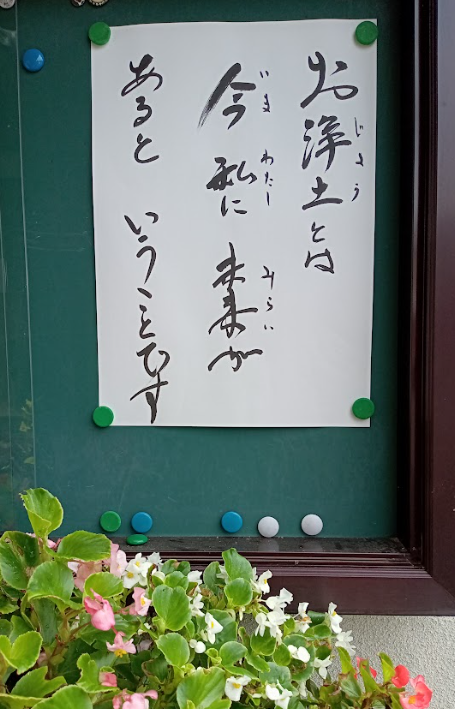 お浄土とは
じょう
今私に未来が
いま わたし みらい
あると いうことです